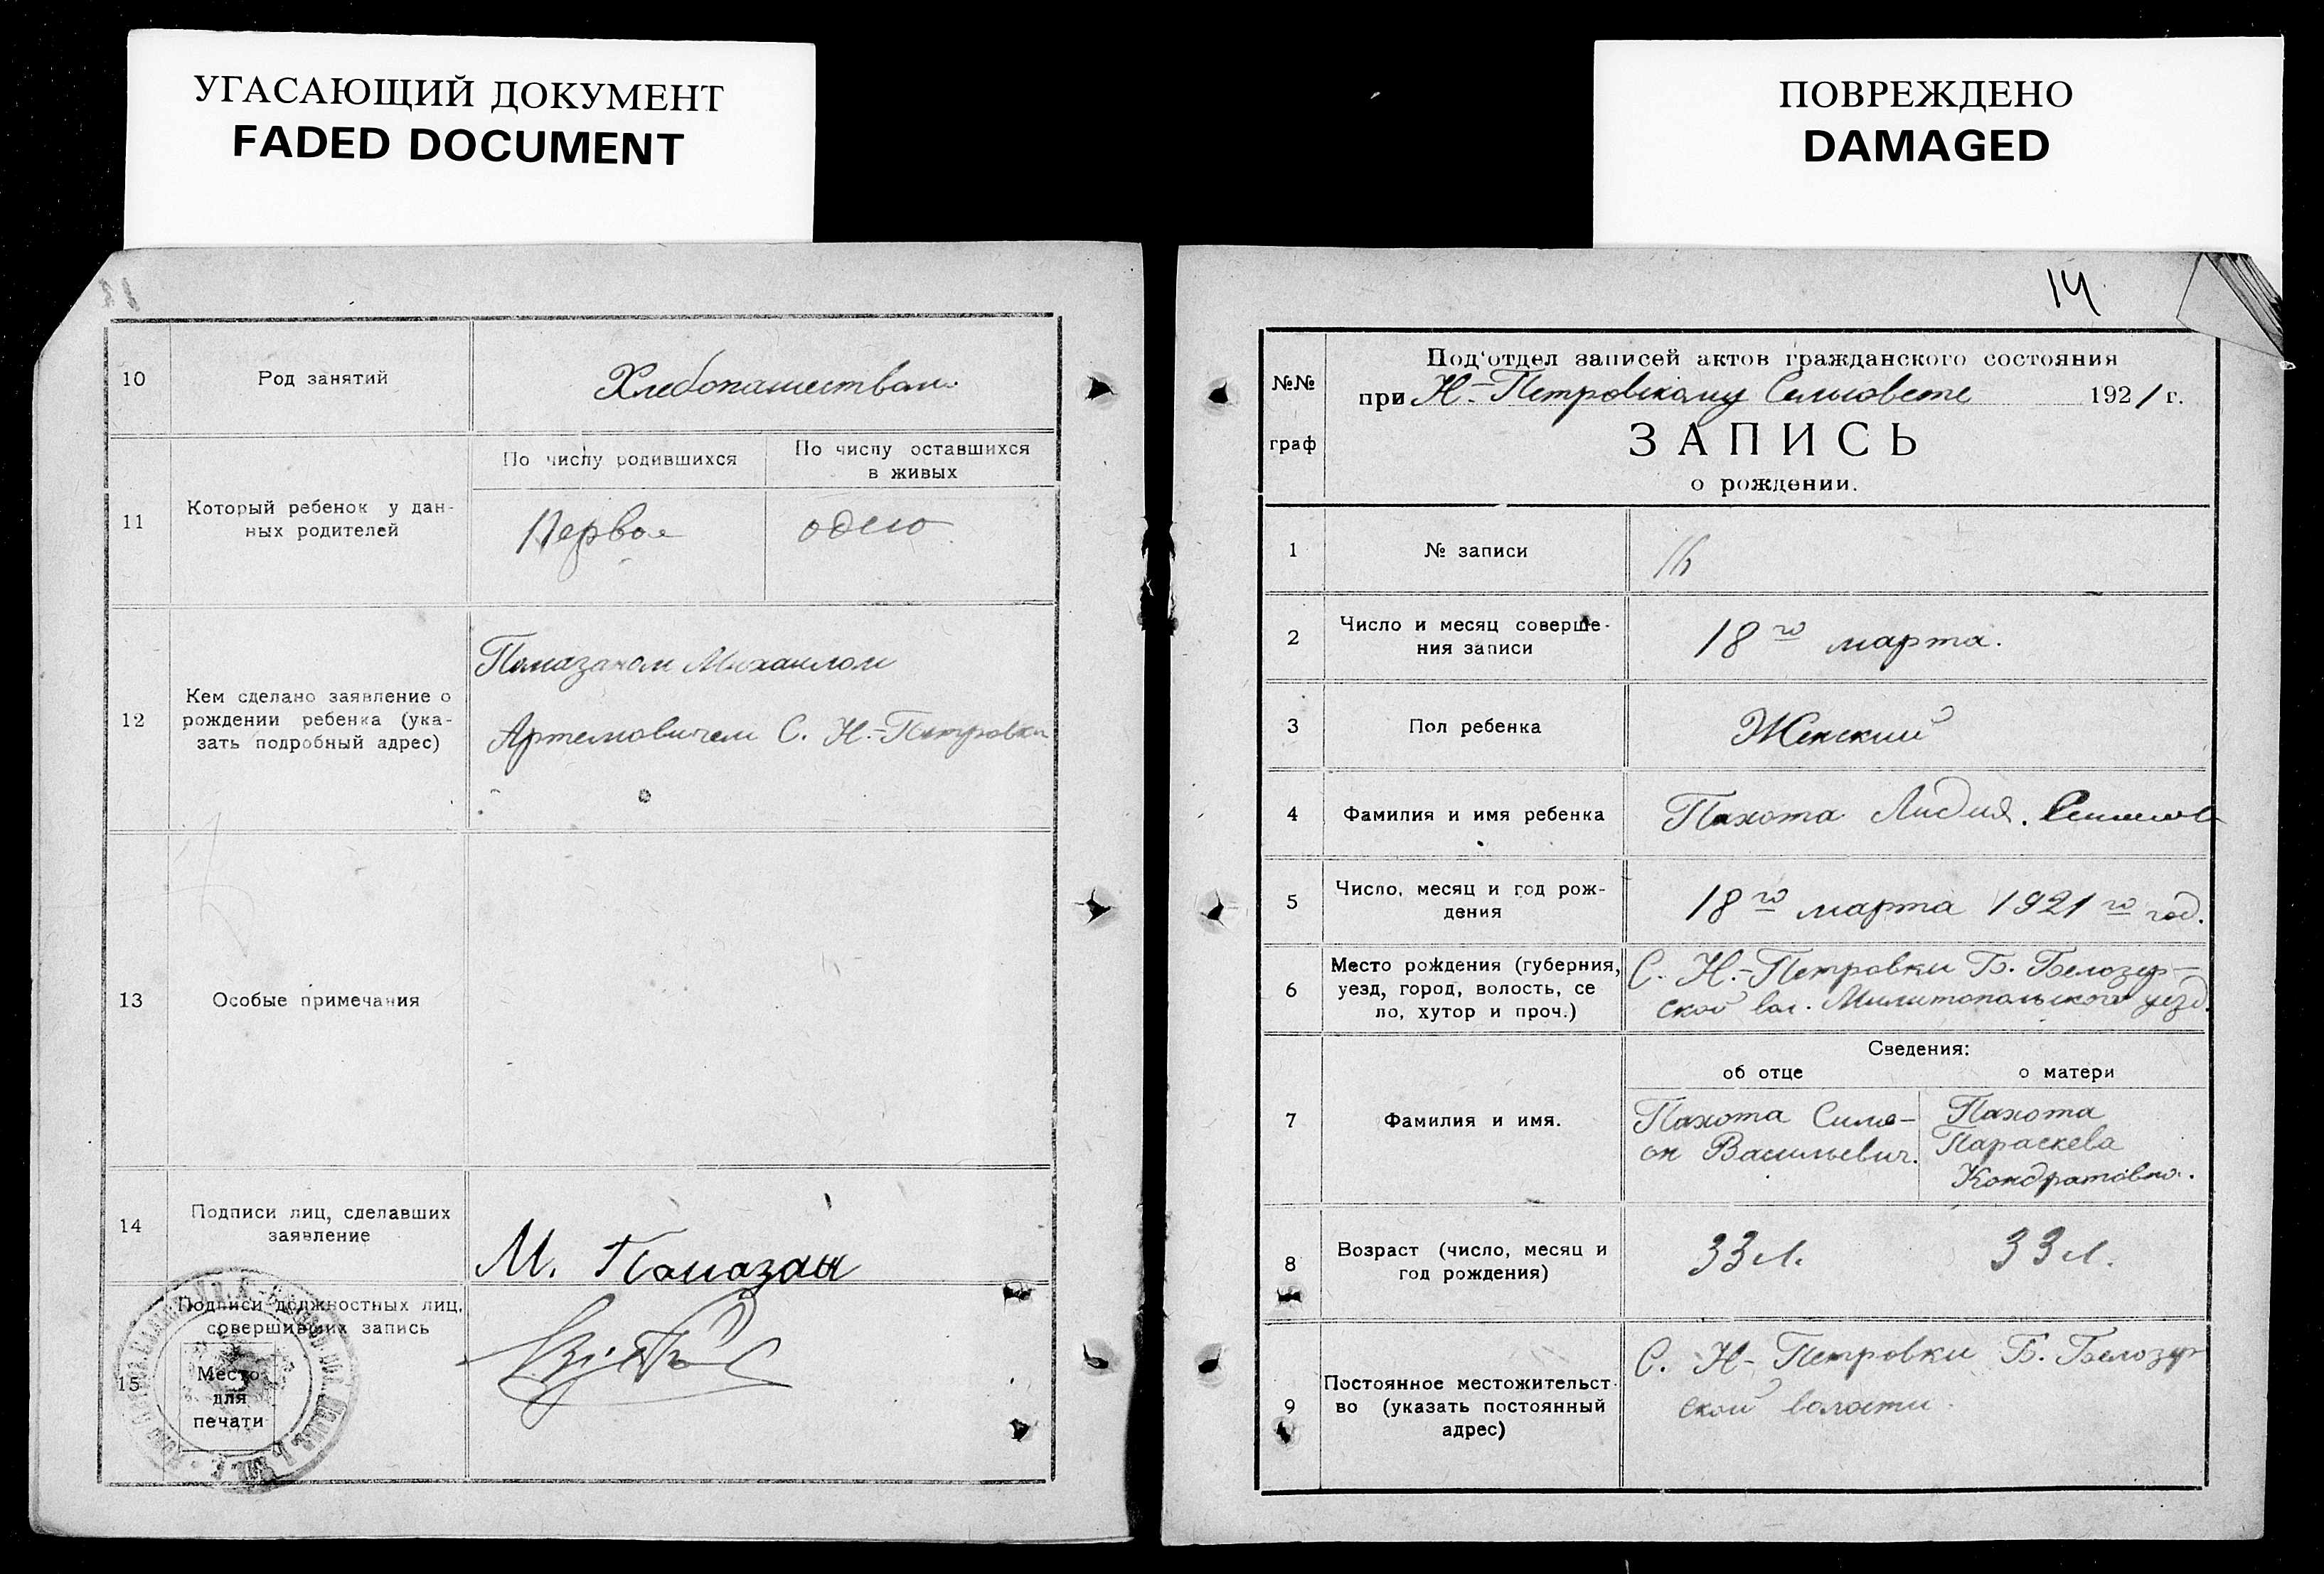 УГАСАЮЩИЙ ДОКУМЕНТ
FADED DOCUMENT
10
Род занятий
Хлебопашеством
11
Который ребенок у дан-
ных родителей
По числу родившихся
По числу оставшихся
в живых
Первое
одно
12
Кем сделано заявление о
рождении ребенка (ука-
зать подробный адрес)
Помазаном Михаилом
Артемовичем С. Н.-Петровки
13
Особые примечания
14
Подписи лиц, сделавших
заявление
М. Помазан
15
Подписи должностных лиц,
совершивших запись
Место
для
печати
ПОВРЕЖДЕНО
DAMAGED
14
№№
граф
Под'отдел записей актов гражданского состояния
при Н.-Петровскому Сельсовете 1921 г.
ЗАПИСЬ
о рождении.
1
№ записи
16
2
Число и месяц соверше-
ния записи
18го марта.
3
Пол ребенка
Женский
4
Фамилия и имя ребенка
Пахота Лидия.
5
Число, месяц и год рож-
дения
18го марта 1921го год.
6
Место рождения (губерния,
уезд, город, волость, се
ло, хутор и проч.)
С. Н.-Петровки Б. Белозер-
ской вол. Милитопольского уезд.
Сведения:
об отце
о матери
7
Фамилия и имя.
Пахота Симе-
он Васильевич.
Пахота
Параскева
Кондратовна.
8
Возраст (число, месяц и
год рождения)
33 л.
33 л.
9
Постоянное местожительст-
во (указать постоянный
адрес)
С. Н-Петровки Б. Белозер
ской волости.